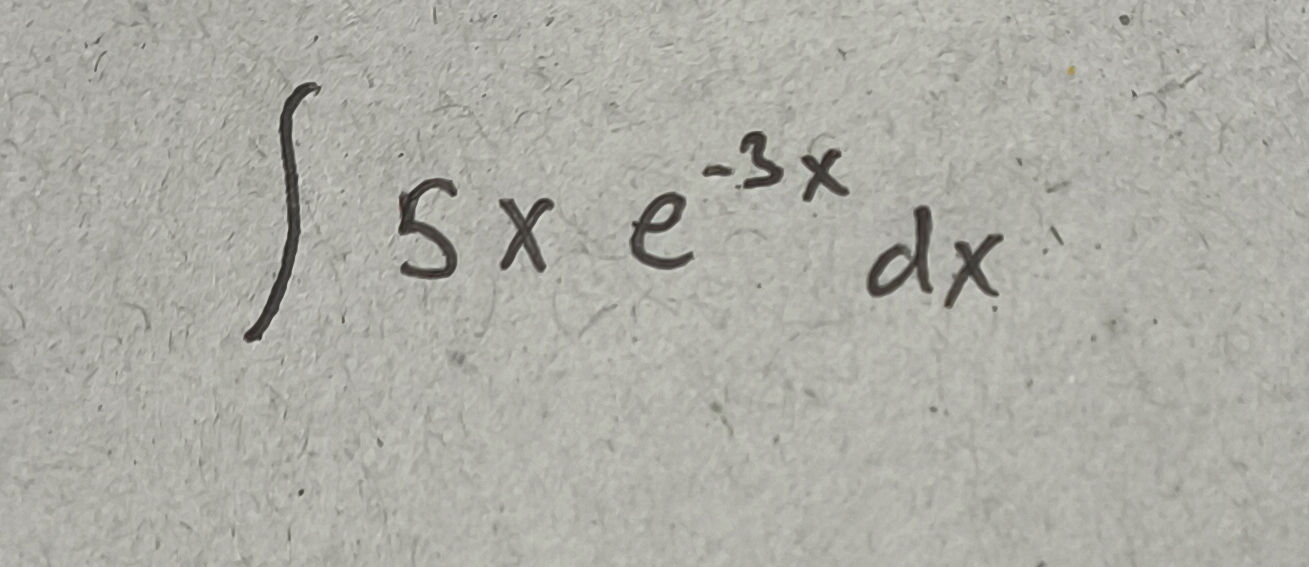 ∫ 5x e^{-3x} dx